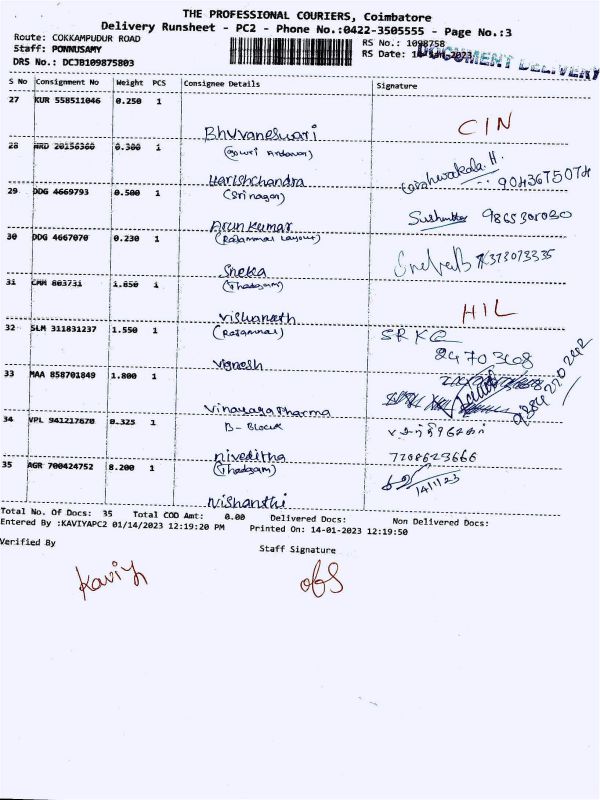 THE PROFESSIONAL COURIERS, Coimbatore
Delivery Runsheet - PC2 - Phone No.:0422-3505555 - Page No.:3
Route: COKKAMPUDUR ROAD
RS No.: 1098758
Staff: PONNUSAMY
RS Date: 14-JAN-2023
DOCUMENT DELIVERY
DRS No.: DCJB109875803
S No Consignment No Weight PCS Consignee Details Signature
27 KUR 558511046 0.250 1
Bhuvaneswari CIN
28 HRD 20156360 0.300 1
Harishchandra 9043675074
(Srinagar)
29 DDG 4669793 0.500 1
Arun Kumar
(Rajammal Layout)
30 DDG 4667070 0.230 1
Sneka 7373073335
(Thadagam)
31 CMM 803731 1.850 1
HIL
(Rajammal)
32 SLM 311831237 1.550 1
SRKC
Vignesh
33 MAA 858701849 1.800 1
Vinayaga Pharma
B-Block
34 VPL 941217670 0.325 1
Niveditha 7708623666
(Thadagam)
35 AGR 700424752 8.200 1
14/1/23
Nishanthi
Total No. Of Docs: 35 Total COD Amt: 0.00 Delivered Docs: Non Delivered Docs:
Entered By :KAVIYAPC2 01/14/2023 12:19:20 PM Printed On: 14-01-2023 12:19:50
Verified By
Staff Signature